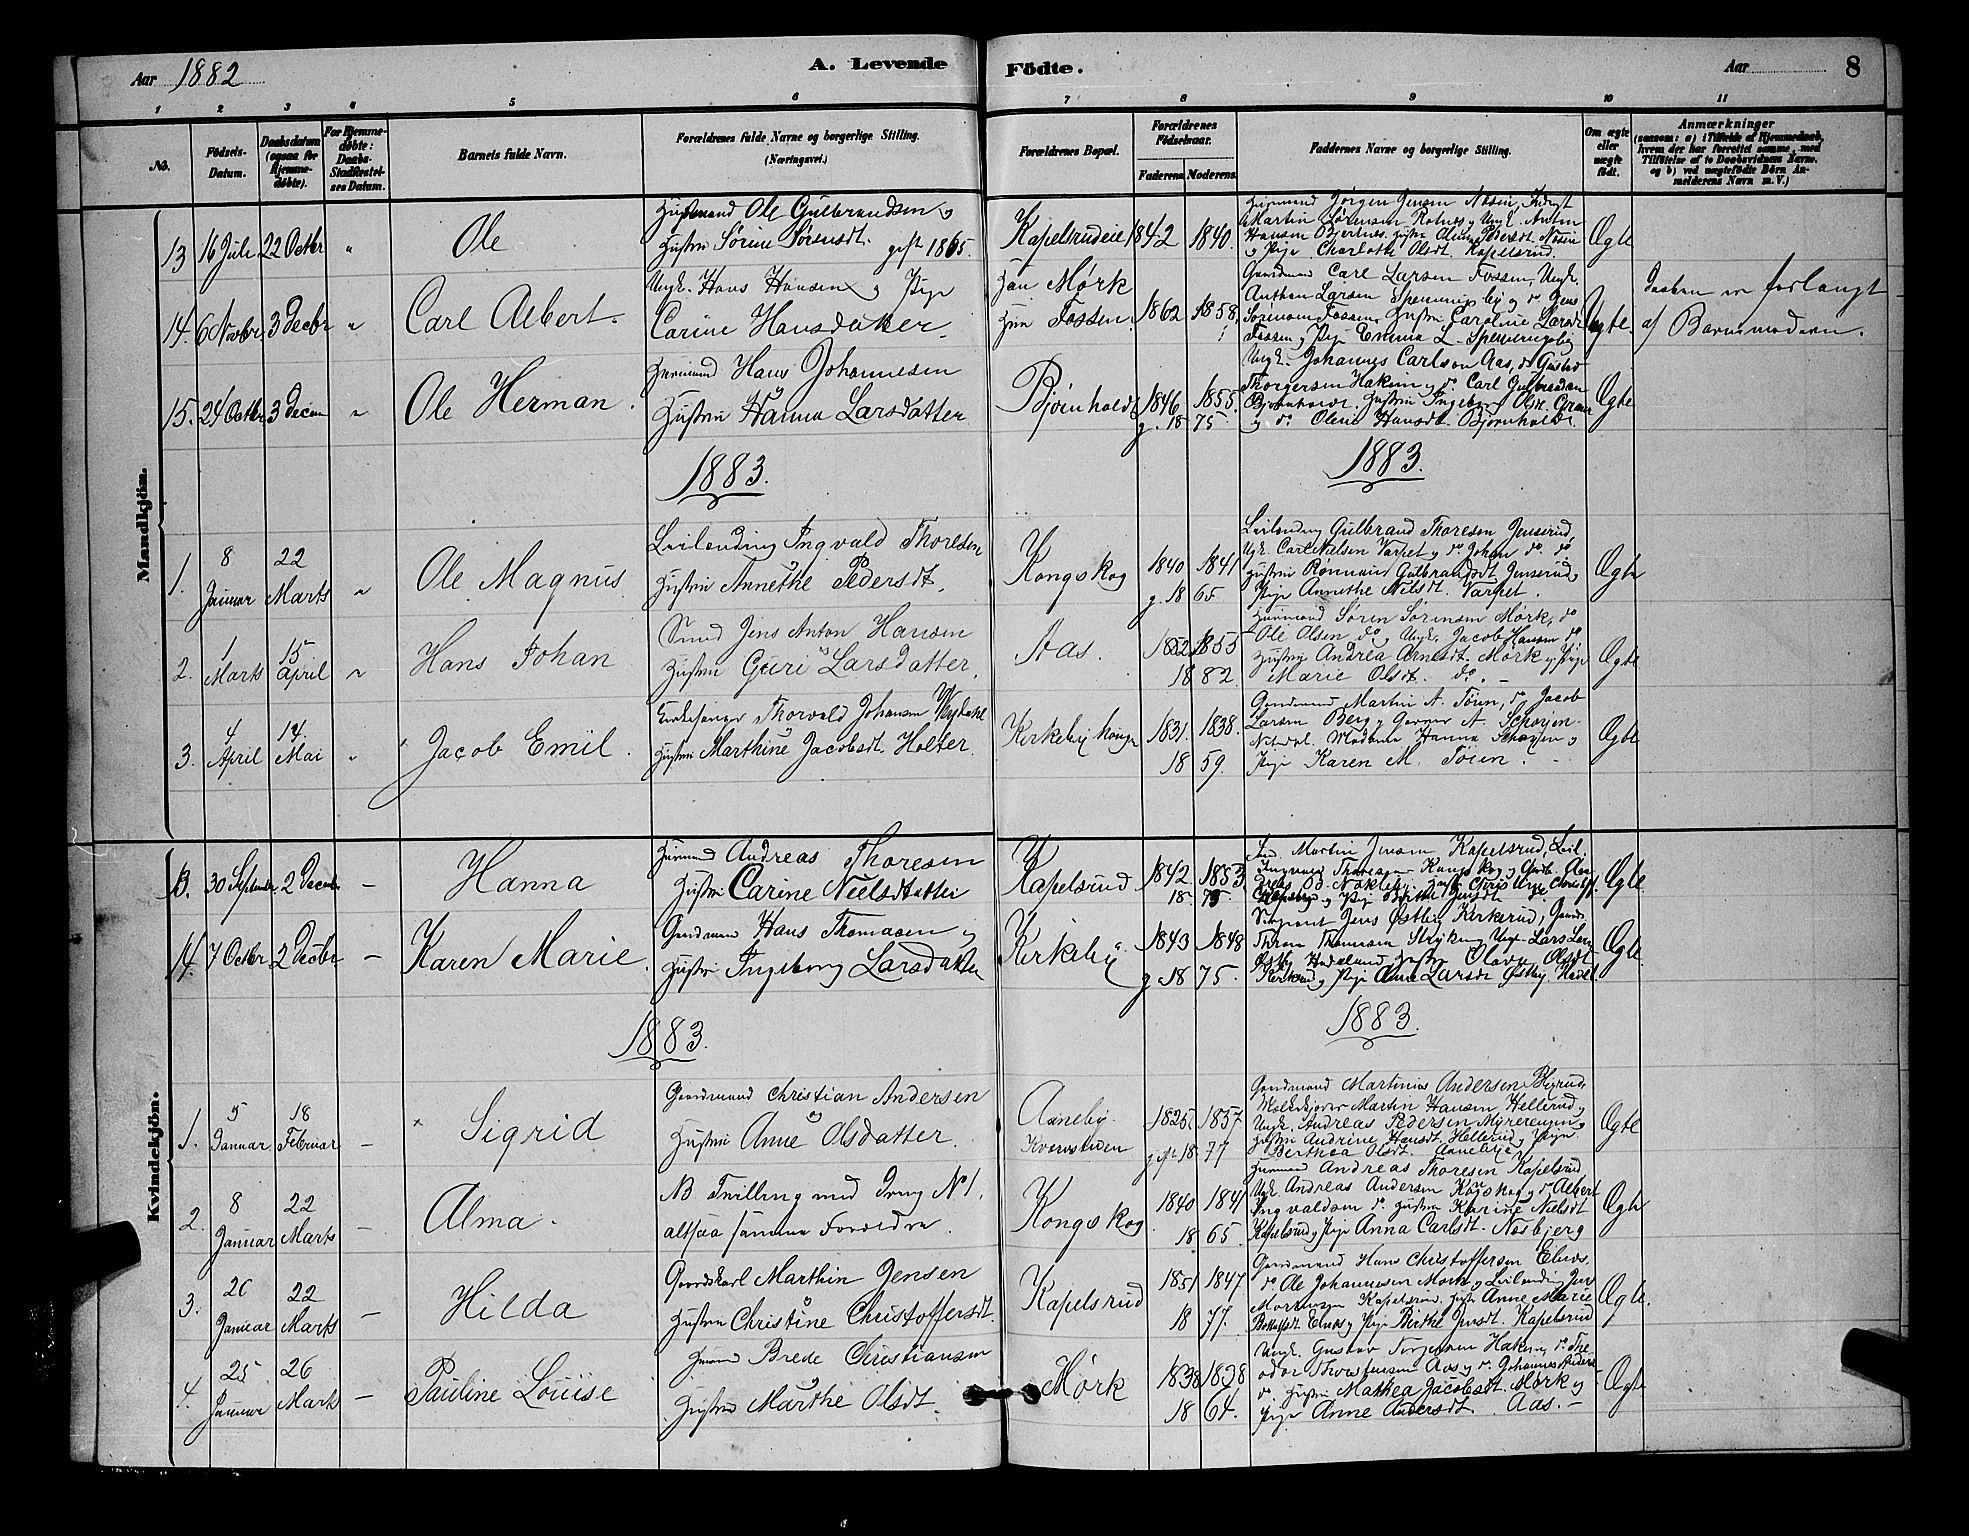 Aar 1882
A. Levende
Födte.
Aar
8
1 2 3 4 5 6 7 8 9 10 11
No.
Födsels-Datum.
Daabsdatum (ogsaa for Hjemme-döbte).
For Hjemme-döbte: Daabs-Stadfæstel-ses Datum.
Barnets fulde Navn.
Forældrenes fulde Navne og borgerlige Stilling. (Næringsvei.)
Forældrenes Bopæl.
Forældrenes Födselsaar.
Faderens. Moderens.
Faddernes Navne og borgerlige Stilling.
Om ægte eller uægte födt.
Anmærkninger
(saasom: a) i Tilfælde af Hjemmedaab, hvem der har forrettet samme, med Tilföielse af to Daabsvidners Navne. og b) ved uægtefödte Börn An-melderens Navn m. V.)
Mandkjön.
13 16 Juli 22 Octbr " Ole
Husmand Ole Gulbrandsen og
Hustru Sörine Sörensdt. gift 1865.
Kapelsrudeie 1842 1840.
Jörgen Jensen Næsen,
Martin Sörensen Rotnes, Ungk. Anton
Hansen Bjertnes, Hustru Oline Pedersdt. Næsen
og Pige Charlotte Olsdt. Kapelsrud.
Ægte
14. 6 Novbr 3 Decbr " Carl Albert.
Ungk. Hans Hansen og Pige
Carine Hansdatter
Han Mörk
Hun Fossen. 1862 1858.
Gaardmand Carl Larsen Fossen, Ungk.
Anthon Larsen Spenningsby og do Jens
Sörensen Fossen, Hustru Caroline Larsdt
Fossen og Pige Emma L. Spenningsby
Uægte.
Daaben er forlangt
af Barnemoderen.
15. 24 Octbr 3 Decem " Ole Herman.
Husmand Hans Johannesen
Hustru Hanna Larsdatter
Bjørnholdt 1846 1855.
g. 18 75.
Ungk. Johannes Carlsen Aas, do Gustav
Thorgersen Haken og do Carl Gulbrandsen
Bjørnholdt. Hustru Ingeborg Olsdt.
og do Oline Hansdt. Bjørnholdt.
Ægte
1883.
1883.
1. 8 Januar 22 Marts " Ole Magnus
Leilending Ingvald Thoresen
Hustru Annethe Pedersdt.
Kongskog 1840 1841
g. 18 65.
Leilending Gulbrand Thoresen Jenserud,
Ugk. Carl Nilsen Varpet og do Johan do do
Hustru Rønnaug Gulbrandsdt Jenserud og
Pige Annethe Nilsdt. Varpet.
Ægte
2. 1 Marts 15 April " Hans Johan
Smed Jens Anton Hansen
Hustru Guri Larsdatter.
Aas. 1852 1855
18 82.
Husmand Søren Sørensen Mörk, do
Ole Olsen do og Ungk. Jacob Hansen do
Hustru Andrea Arnesdt. Mörk og Pige
Marie Olsdt. do. -
Ægte
3. 4 April 14. Mai " Jacob Emil.
Kirkesanger Thorvald Johansen
Hustru Marthine Jacobsdt. Holter.
Kirkeby 1831. 1838.
18 59.
Gaardmand Martin A. Töien, do Jacob
Larsen Berg og Garver A. Schøyen
Nitedal. Madame Hanna Schøyen og
Pige Karen M. Töien. -
Ægte
Kvindekjön.
13. 30 September 2 Decem - Hanna
Husmand Andreas Thoresen
Hustru Carine Nielsdatter
Kapelsrud 1842 1853
18 75.
Martin Jensen Kapelsrud, Leil.
Ingvald Thoresen Kongskog
Ægte.
14. 7 Octbr 2 Decbr - Karen Marie.
Gaardmand Hans Thomasen og
Hustru Ingeborg Larsdatter
Kirkeby 1843 1848
g. 18 75.
Sergeant Jens Østby Kirkerud, Gaardm.
Thomasen Stryken, Ungk. Lars Lars
Østby Hadeland Hustru Olava Olsdt
Kirkerud og Pige Anne Larsdt Østby. Hadel.
Ægte.
1883.
1883.
1. 5 Januar 18 Februar - Sigrid
Gaardmand Christian Andersen
Hustru Anne Olsdatter.
Aaneby.
1825. 1857
gift 18 77
Gaardmand Martinius Andersen
Melkekjører Martin Hansen Hellerud,
Ungk. Andreas Pedersen Myrerengen,
Hustru Andrine Hansdt. Hellerud og Pigen
Berthea Olsdt. Aaneby
Ægte
2. 8 Januar 22 Marts - Alma.
NB Tvilling med Dreng No 1.
altsaa samme Forældre.
Kongskog 1840 1841
18 65.
Husmand Andreas Thoresen Kapelsrud
Ungk. Andreas Andersen Kongskog og do Albert
Ingvaldsen do. Hustru Karine Nielsdt
Kapelsrud og Pige Anna Carlsdt. Næsbjerg
Ægte
3. 26 Januar 22 Marts - Hilda
Gaardskarl Marthin Jensen
Hustru Christine Christoffersdt.
Kapelsrud 1851 1847
18 77.
Gaardmand Hans Christoffersen Elnes.
do Ole Johannesen Mörk og Leilending Jens
Mortensen Kapelsrud. Hustru Anne Marie
Elnes og Pige Birthe Jensdt. Kapelsrud
Ægte.
4. 25 Januar 26 Marts - Pauline Louise
Husmand Brede Christiansen
Hustru Marthe Olsdt.
Mørk 1838 1838
18 64.
Ungk. Gustav Torgersen Haken, do The-
odor Thorstensen Aas og do Johannes Anders
do. Hustru Mathea Jacobsdt. Mörk og
Pige Anne Andersdt. Aas. -
Ægte